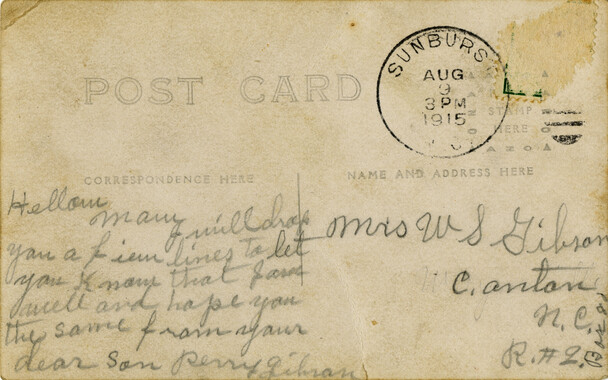 POST CARD
SUNBURS
AUG
9
3 PM
1915
STAMP
HERE
AZO
CORRESPONDENCE HERE
NAME AND ADDRESS HERE
Hellow
Mamy I will drop
you a fiew lines to let
you Know that I am
well and hope you
the same from your
dear son Perry Gibson
Mrs W S Gibson
Canton
N.C.
R.#2. Box